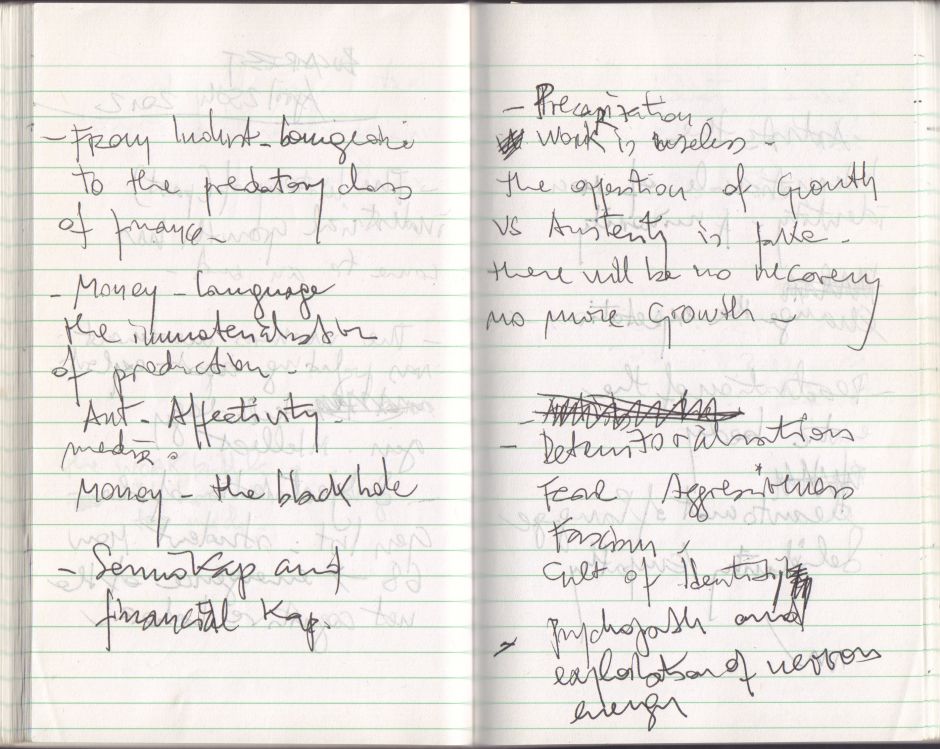 - From Indust - bourgeoisie
to the predatory class
of finance -
- Money - Language
the immaterialisation
of production -
Art - Affectivity -
media.
Money - the black hole
- SemioKap and
financial Kap.
- Precarization.
Work is useless -
the opposition of Growth
vs Austerity is fake -
there will be no recovery
no more Growth
- Deterritorialisation
Fear Aggressiveness
Fascism,
Cult of Identity
- psychopath and
exploitation of nervous
energy